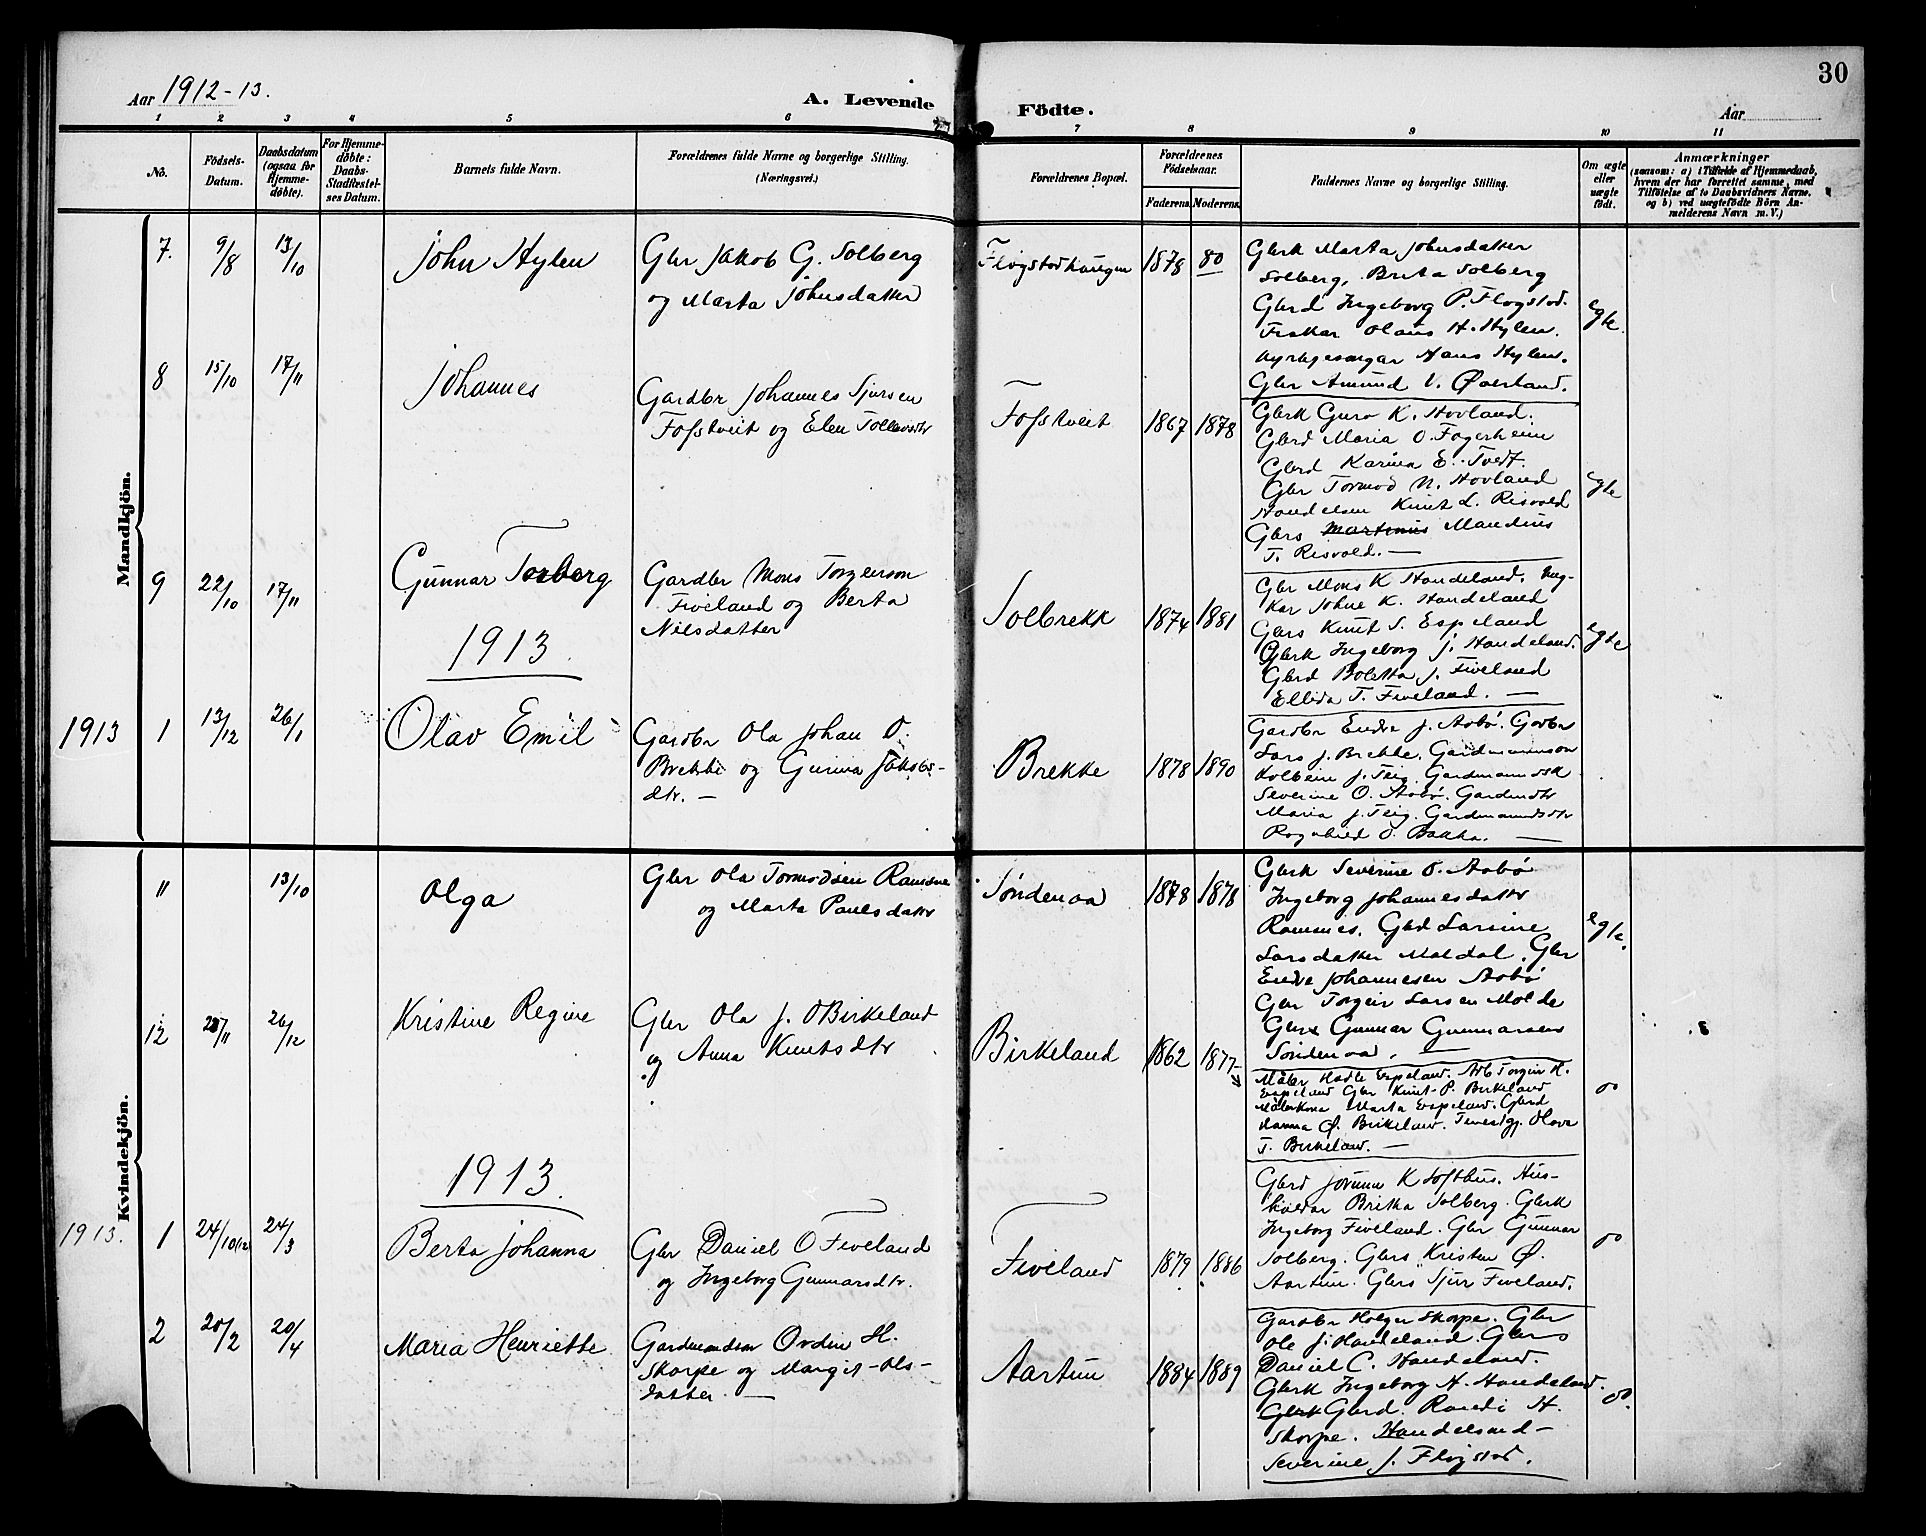 30
Aar 1912-13.
A. Levende Födte.
Aar
1 2 3 4 5 6 7 8 9 10 11
No.
Födsels-Datum.
Daabsdatum (ogsaa for Hjemme-döbte).
For Hjemme-döbte: Daabs-Stadfæstel-ses Datum.
Barnets fulde Navn.
Forældrenes fulde Navne og borgerlige Stilling.
(Næringsvei.)
Forældrenes Bopæl.
Forældrenes Födselsaar.
Faderens.
Moderens.
Faddernes Navne og borgerlige Stilling.
Om ægte eller uægte födt.
Anmærkninger
(saasom: a) i Tilfælde af Hjemmedaab, hvem der har forrettet samme, med Tilföielse af to Daabsvidners Navne, og b) ved uægtefödte Börn An-melderens Navn m. V.)
Mandkjön.
7. 9/8 13/10 John Hylen
Gbr Jakob G. Solberg
og Marta Johnsdatter
Flogstadhaugen 1878 80
Gbrk Marta Johnsdatter
Solberg, Brita Solberg
Gbrd Ingeborg P. Flogstad.
Fiskar Olaus H. Hylen.
kyrkjesongar Hans Hylen.
Gbr Amund V. Øverland.
egte.
8 15/10 17/11 Johannes
Gardbr Johannes Sjursen
Fosstveit og Elen Tollevsdtr
Fosstveit 1867 1878
Gbrk Guro K. Hovland.
Gbrd Maria O. Fagerheim
Gbrd Karina E. Tvedt.
Gbr Tormod N. Hovland
Handelsm Knut L. Risvold
Gbrs Martinus Mandius
T. Risvold. —
egte
9 22/10 17/11 Gunnar Torberg
Gardbr Mons Torgerson
Fiveland og Berta
Nilsdatter
Solbrekk 1874 1881
Gbr Mons K Handeland, ung-
kar Johne K. Handeland
Gbrs Knut S. Espeland
Gbrk Ingeborg J. Handeland.
Gbrd Boletta J. Fiveland
Ellida T. Fiveland. —
egte
1913.
1913 1 13/12 26/1 Olav Emil
Gardbr Ola Johan O.
Brekke og Gurina Jakobs-
dtr. —
Brekke 1878 1890
Gardbr Endre J. Aabø. Gardbr
Lars J. Brekke. Gardmannson
Kolbein J. Teig. Gardmannsk
Severine O. Aabø. Gardmdtr
Maria J. Teig. Gardmannsdtr
Ragnhild O. Bakka. —
Kvindekjön.
11 13/10 Olga
Gbr Ola Tormodsen Ramsne
og Marta Paulsdatter
Søndenaa 1878 1878
Gbrk Severine O. Aabø
Ingeborg Johannesdatter
Ramsnes. Gbd Larsine
Larsdatter Moldal. Gbr
Endre Johannesen Aabø
Gbr Torgeir Larsen Molde
Gbrs Gunnar Gunnarsen
Søndenaa. —
egte.
12 26/12 Kristine Regine
Gbr Ola J. Birkeland
og Anna Knutsdtr
Birkeland 1862 1877
Målar Hadle Espeland. Arb Torgeir H.
Espeland Gbr Knut P. Birkeland
Målarkona Marta Espeland. Gbrd
Hanna Ø. Birkeland. Tenestgj. Olava
T. Birkeland. —
1913.
1913. 1 24/10 (12) 24/3 Berta Johanna
Gbr Daniel O Fiveland
og Ingeborg Gunnarsdtr.
Fiveland 1879 1886
Gbrd Jorunn K Softhus. Hus-
Britha Solberg. Gbrk
Ingeborg Fiveland. Gbr Gunnar
Solberg. Gbrs Kristen Ø.
Aartun. Gbrs Sjur Fiveland.
2 20/2 20/4 Maria Henriette
Gardmandson Orden H.
Skorpe og Margit Ols-
datter. —
Aartun 1884 1889
Gardbr Holger Skorpe. Gbr
Ole J. Handeland. Gbrs
Daniel C. Handeland.
Gbrk Ingeborg H. Handeland.
Gbrk Gbrd. Randi H.
Skorpe. Handelsmd—
Severine J. Flogstad.